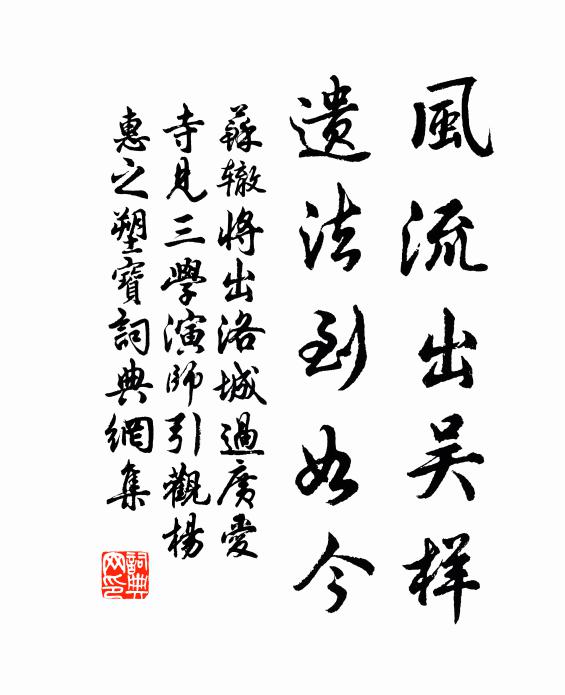 風流出吴样
遗法到如今
蘇辙将出洛城過廣愛
寺見三學演師引觀楊
惠之塑寶詞典網集
詞典网印